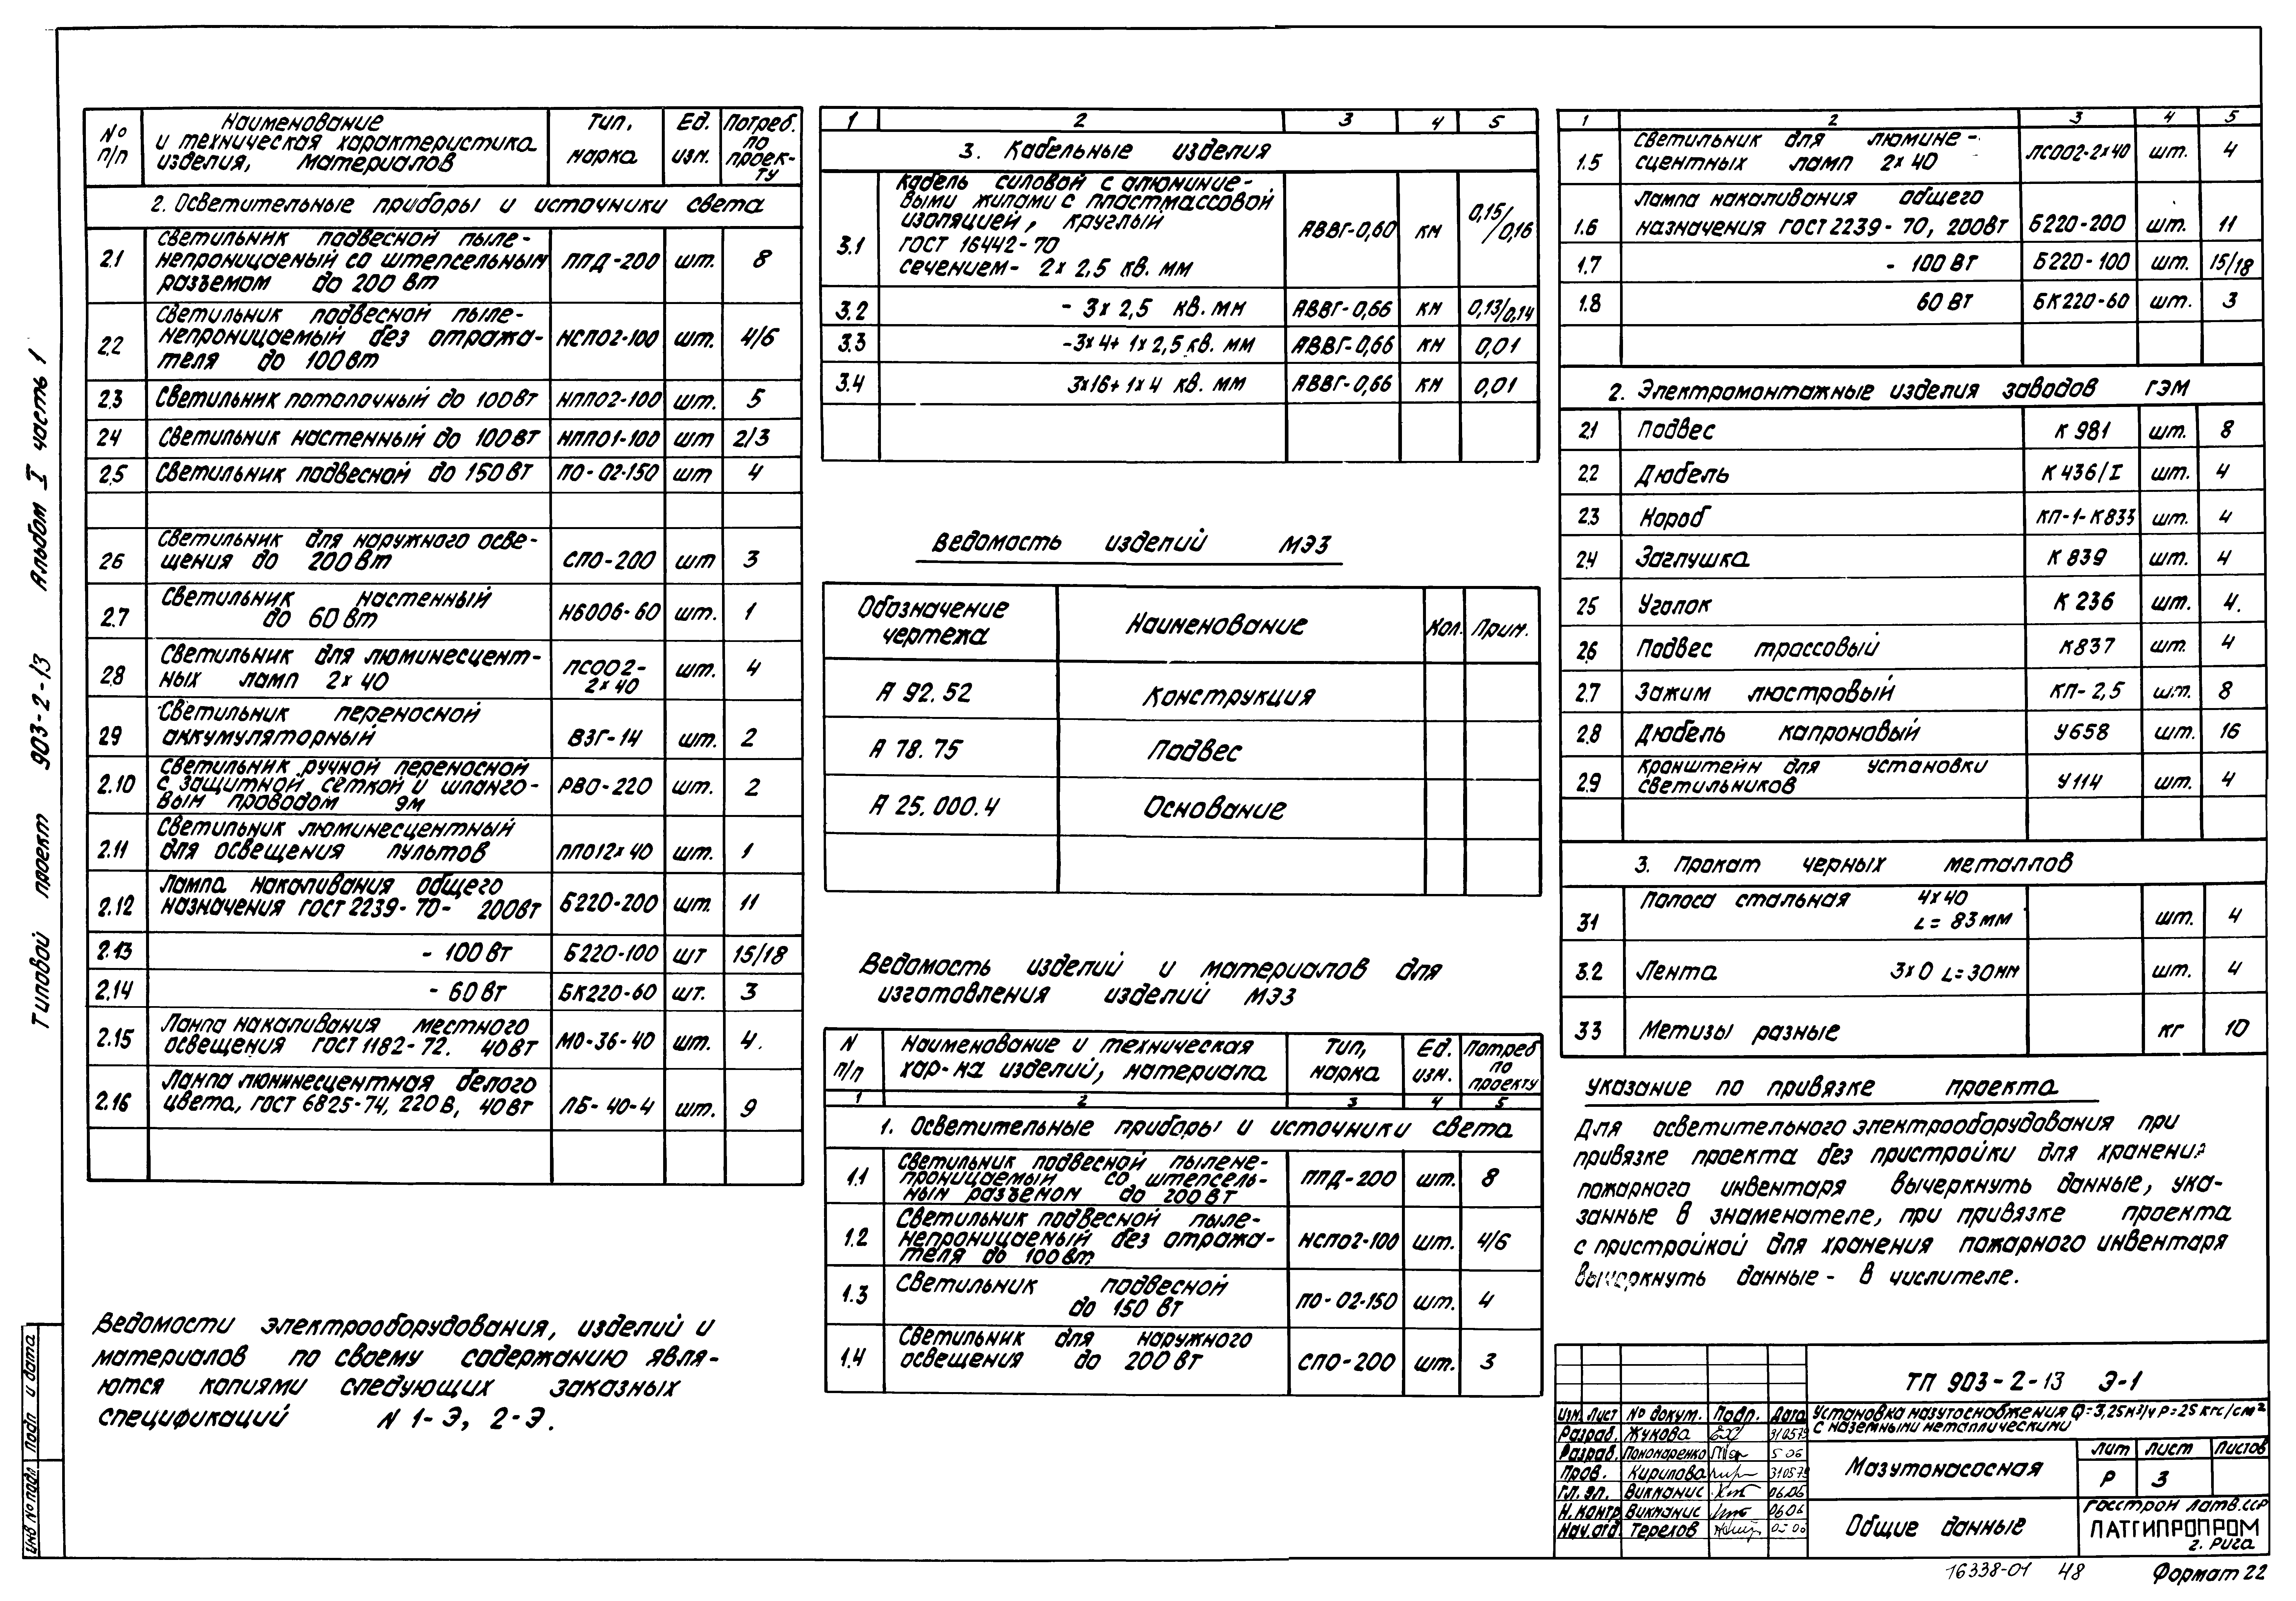 Типовой проект 903-2-13 Альбом I часть 1
№ п/п | Наименование и техническая характеристика изделия, материалов | Тип, марка | Ед. изм. | Потреб. по проек-ту
2. Осветительные приборы и источники света
2.1 | Светильник подвесной пыле-
непроницаемый со штепсельным | ППД-200 | шт. | 8
разъемом до 200 вт
2.2 | Светильник подвесной пыле-
непроницаемый без отража- | НСП02-100 | шт. | 4/6
теля до 100 вт
2.3 | Светильник потолочный до 100 вт | НПП02-100 | шт. | 5
2.4 | Светильник настенный до 100 вт | НПП01-100 | шт | 2/3
2.5 | Светильник подвесной до 150 вт | ПО-02-150 | шт | 4
2.6 | Светильник для наружного осве-
щения до 200 вт | СПО-200 | шт | 3
2.7 | Светильник настенный
до 60 вт | НБ006-60 | шт. | 1
2.8 | Светильник для люминесцент-
ных ламп 2х40 | ЛС002-2х40 | шт. | 4
2.9 | Светильник переносной
аккумуляторный | ВЗГ-14 | шт. | 2
2.10 | Светильник ручной переносной
с защитной сеткой и шланго- | РВО-220 | шт. | 2
вым проводом 9м
2.11 | Светильник люминесцентный
для освещения пультов | ЛП012х40 | шт. | 1
2.12 | Лампа накаливания общего
назначения ГОСТ 2239-70- 200вт | Б220-200 | шт. | 11
2.13 | - 100 вт | Б220-100 | шт | 15/18
2.14 | - 60 вт | БК220-60 | шт. | 3
2.15 | Лампа накаливания местного
освещения ГОСТ 1182-72. 40вт | МО-36-40 | шт. | 4.
2.16 | Лампа люминесцентная белого
цвета, ГОСТ 6825-74, 220 в, 40 вт | ЛБ-40-4 | шт. | 9
Ведомости электрооборудования, изделий и
материалов по своему содержанию явля-
ются копиями следующих заказных
спецификаций N 1-Э, 2-Э.
1 | 2 | 3 | 4 | 5
3. Кабельные изделия
3.1 | Кабель силовой с алюминие-
выми жилами с пластмассовой
изоляцией, круглый | АВВГ-0,60 | км | 0,15/0,16
ГОСТ 16442-70
сечением- 2х2,5 кв. мм
3.2 | - 3х2,5 кв. мм | АВВГ-0,66 | км | 0,13/0,14
3.3 | -3х4+1х2,5 кв. мм | АВВГ-0,66 | км | 0,01
3.4 | 3х16+1х4 кв. мм | АВВГ-0,66 | км | 0,01
Ведомость изделий МЭЗ
Обозначение чертежа | Наименование | Кол. | Прим.
А 92.52 | Конструкция
А 78.75 | Подвес
А 25.000.4 | Основание
Ведомость изделий и материалов для
изготовления изделий МЭЗ
N п/п | Наименование и техническая хар-ка изделий, материала | Тип, марка | Ед. изм. | Потреб по проекту
1 | 2 | 3 | 4 | 5
1. Осветительные приборы и источники света
1.1 | Светильник подвесной пылене-
проницаемый со штепсель- | ППД-200 | шт. | 8
ным разъемом до 200 вт
1.2 | Светильник подвесной пыле-
непроницаемый без отража- | НСП02-100 | шт. | 4/6
теля до 100 вт
1.3 | Светильник подвесной
до 150 вт | ПО-02-150 | шт. | 4
1.4 | Светильник для наружного
освещения до 200 вт | СПО-200 | шт. | 3
1 | 2 | 3 | 4 | 5
1.5 | Светильник для люмине-
сцентных ламп 2х40 | ЛС002-2х40 | шт. | 4
1.6 | Лампа накаливания общего
назначения ГОСТ 2239-70, 200вт | Б220-200 | шт. | 11
1.7 | - 100 вт | Б220-100 | шт. | 15/18
1.8 | 60 вт | БК220-60 | шт. | 3
2. Электромонтажные изделия заводов ГЭМ
2.1 | Подвес | К 981 | шт. | 8
2.2 | Дюбель | К 436/I | шт. | 4
2.3 | Короб | КП-1-К833 | шт. | 4
2.4 | Заглушка | К 839 | шт. | 4
2.5 | Уголок | К 236 | шт. | 4.
2.6 | Подвес трассовый | К837 | шт. | 4
2.7 | Зажим люстровый | КП-2,5 | шт. | 8
2.8 | Дюбель капроновый | У658 | шт. | 16
2.9 | Кронштейн для установки
светильников | У114 | шт. | 4
3. Прокат черных металлов
3.1 | Полоса стальная 4х40
L=83мм | шт. | 4
3.2 | Лента 3х0 L=30мм | шт. | 4
3.3 | Метизы разные | кг | 10
Указание по привязке проекта
Для осветительного электрооборудования при
привязке проекта без пристройки для хранения
пожарного инвентаря вычеркнуть данные, ука-
занные в знаменателе, при привязке проекта
с пристройкой для хранения пожарного инвентаря
вычеркнуть данные - в числителе.
ТП 903-2-13 Э-1
Изм. Лист № докум. Подп. Дата
Установка мазутоснабжения Q=3,25м³/ч Р=25 кгс/см²
с наземными металлическими
Разраб. Жукова 310579
Разраб. Пономаренко 5 06
Пров. Кирилова 310579
Гл. эл. Викманис 06.06
Н. контр Викманис 06 06
Нач. отд Терехов
Мазутонасосная
Лит Лист Листов
Р 3
Общие данные
Госстрой Латв. ССР
ЛАТГИПРОПРОМ
г. Рига
Инв № подл Подп и дата
16338-01 48 Формат 22